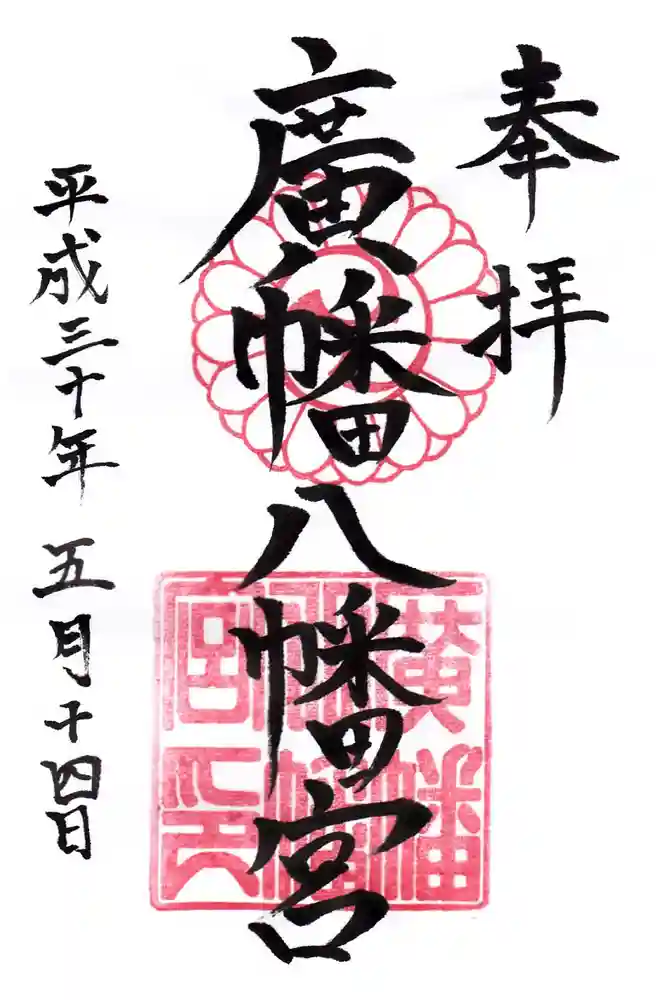 奉拝
廣幡八幡宮
廣幡八幡宮印
平成三十年五月十四日